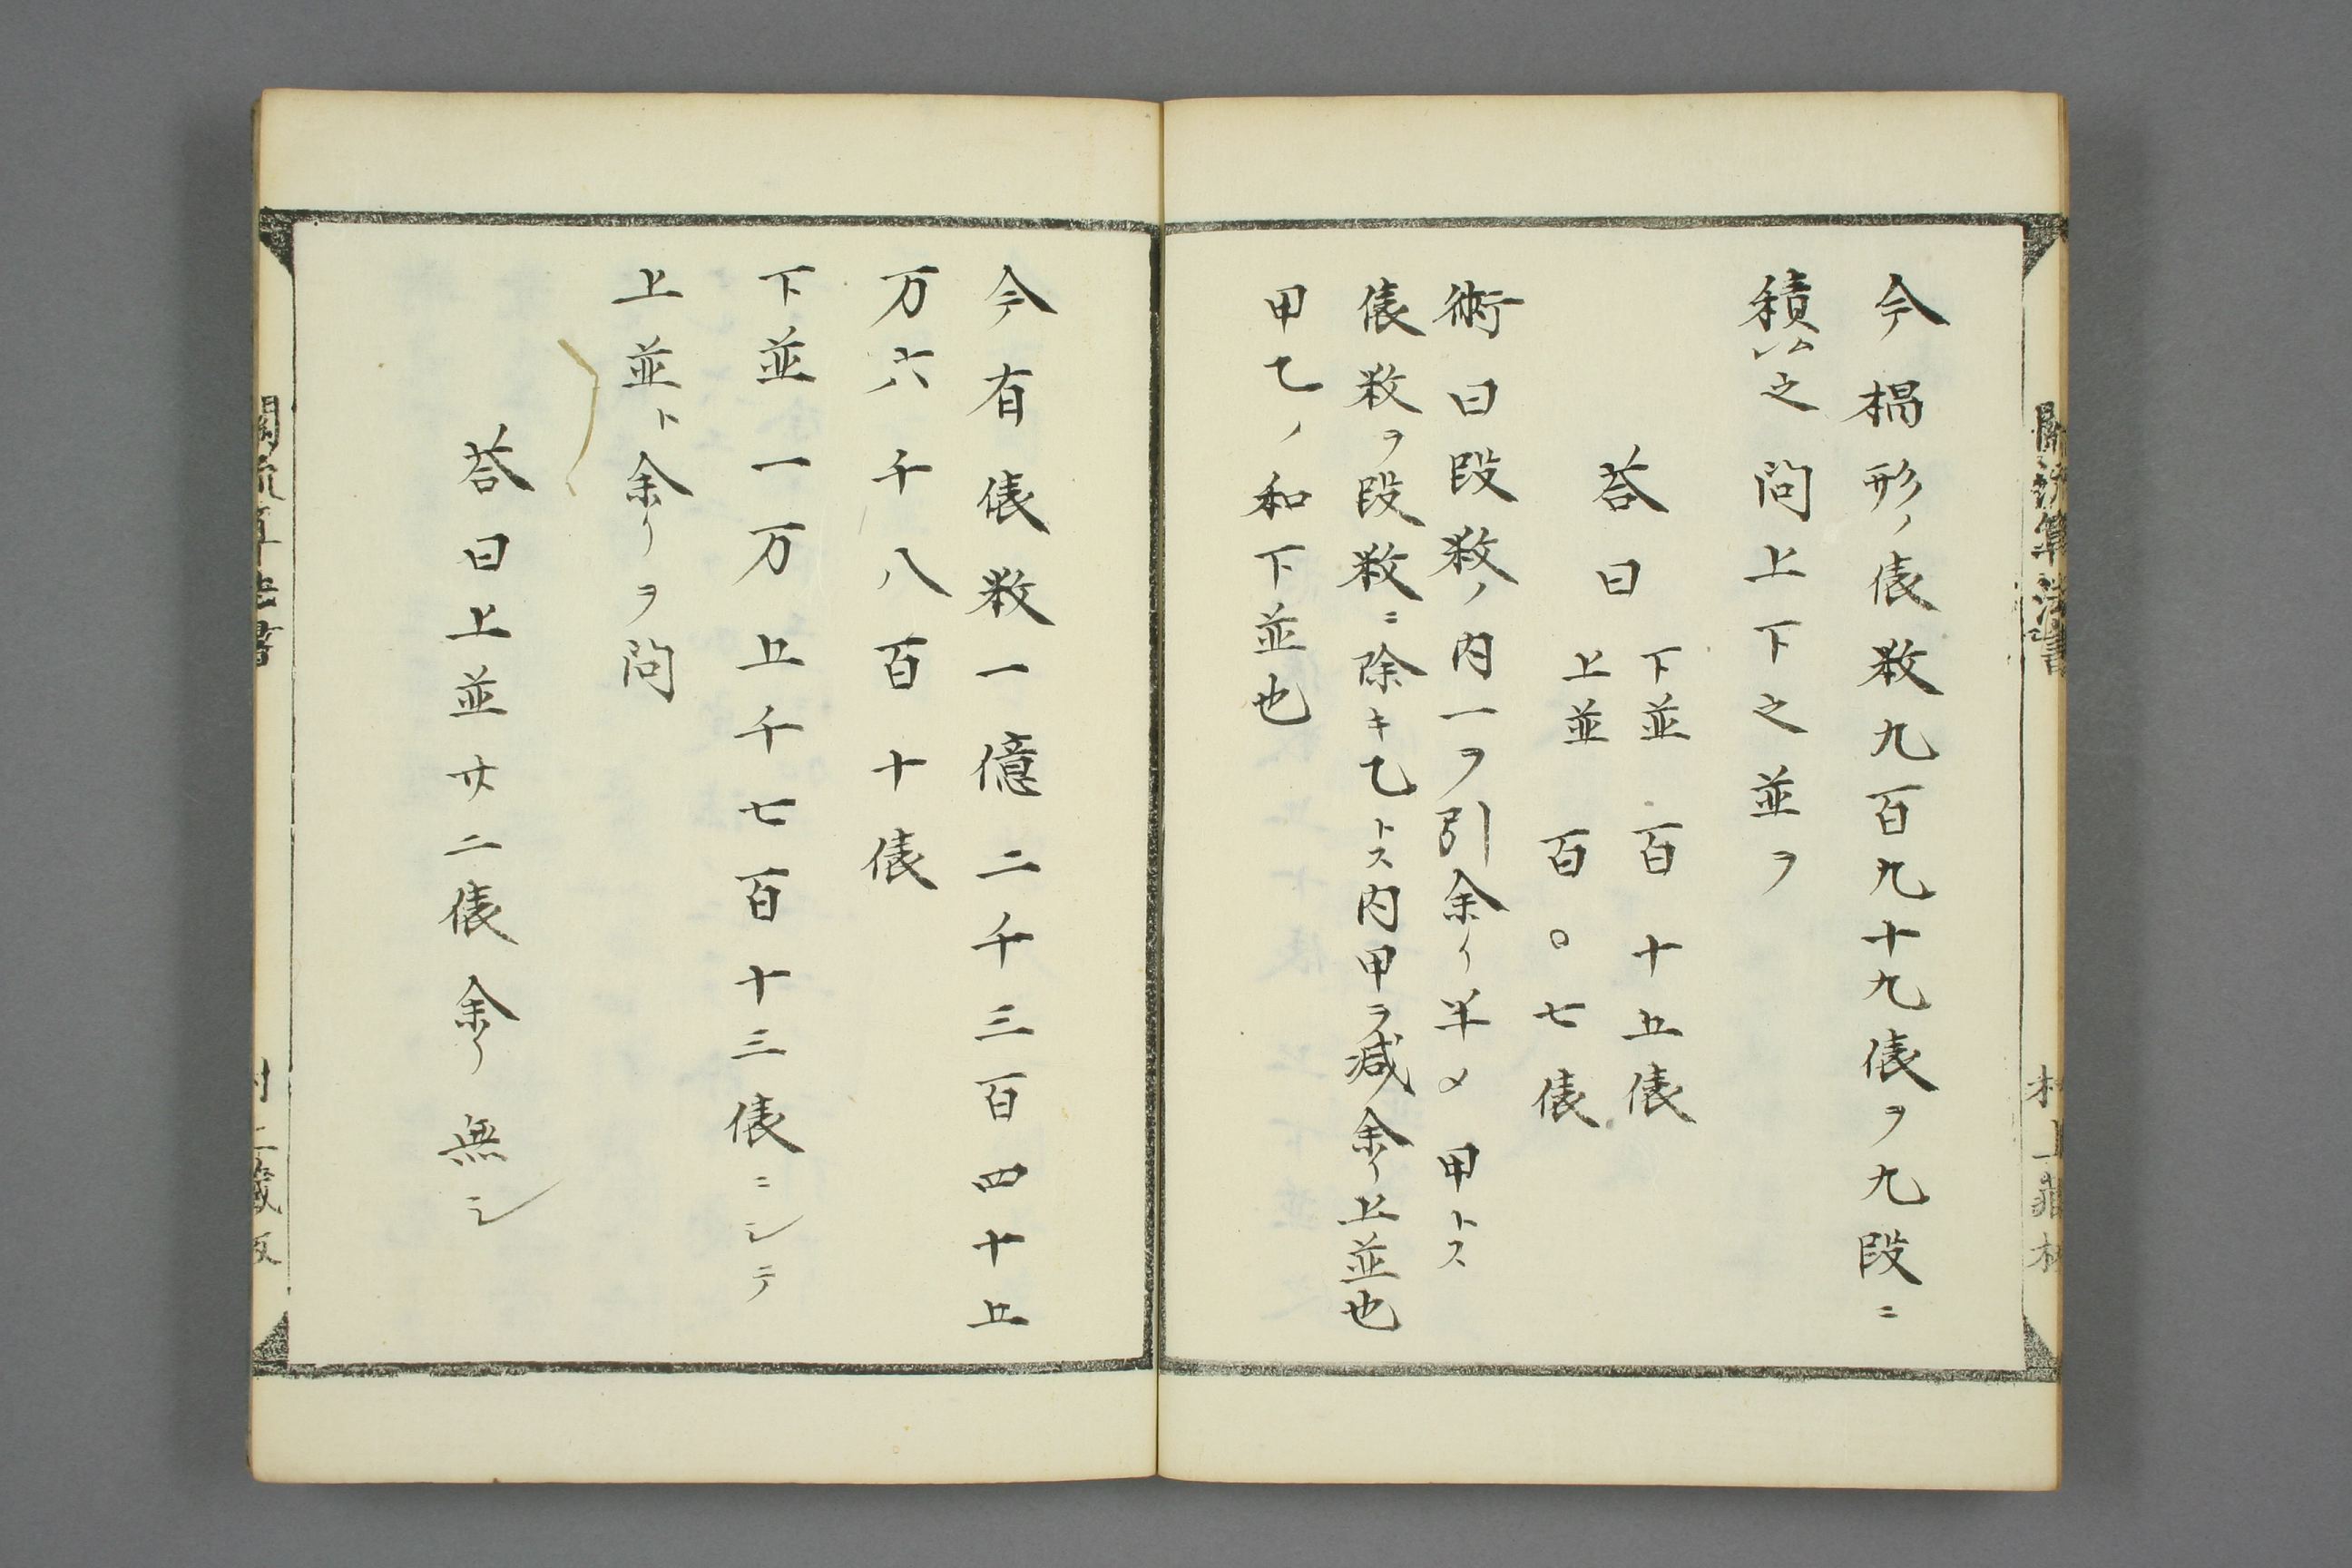 關流算法書
今榻形ノ俵数九百九十九俵ヲ九段ニ
積ム之問上下之並ヲ
荅曰
下並百十五俵
上並百〇七俵
術曰段数ノ内一ヲ引余リ半〆甲トス
俵数ヲ段数ニ除キ乙トス内甲ヲ減余リ上並也
甲乙ノ和下並也
今有俵数一億二千三百四十五
万六千八百十俵
下並一万五千七百十三俵ニシテ
上並ト余リヲ問
荅曰上並廿二俵余リ無シ